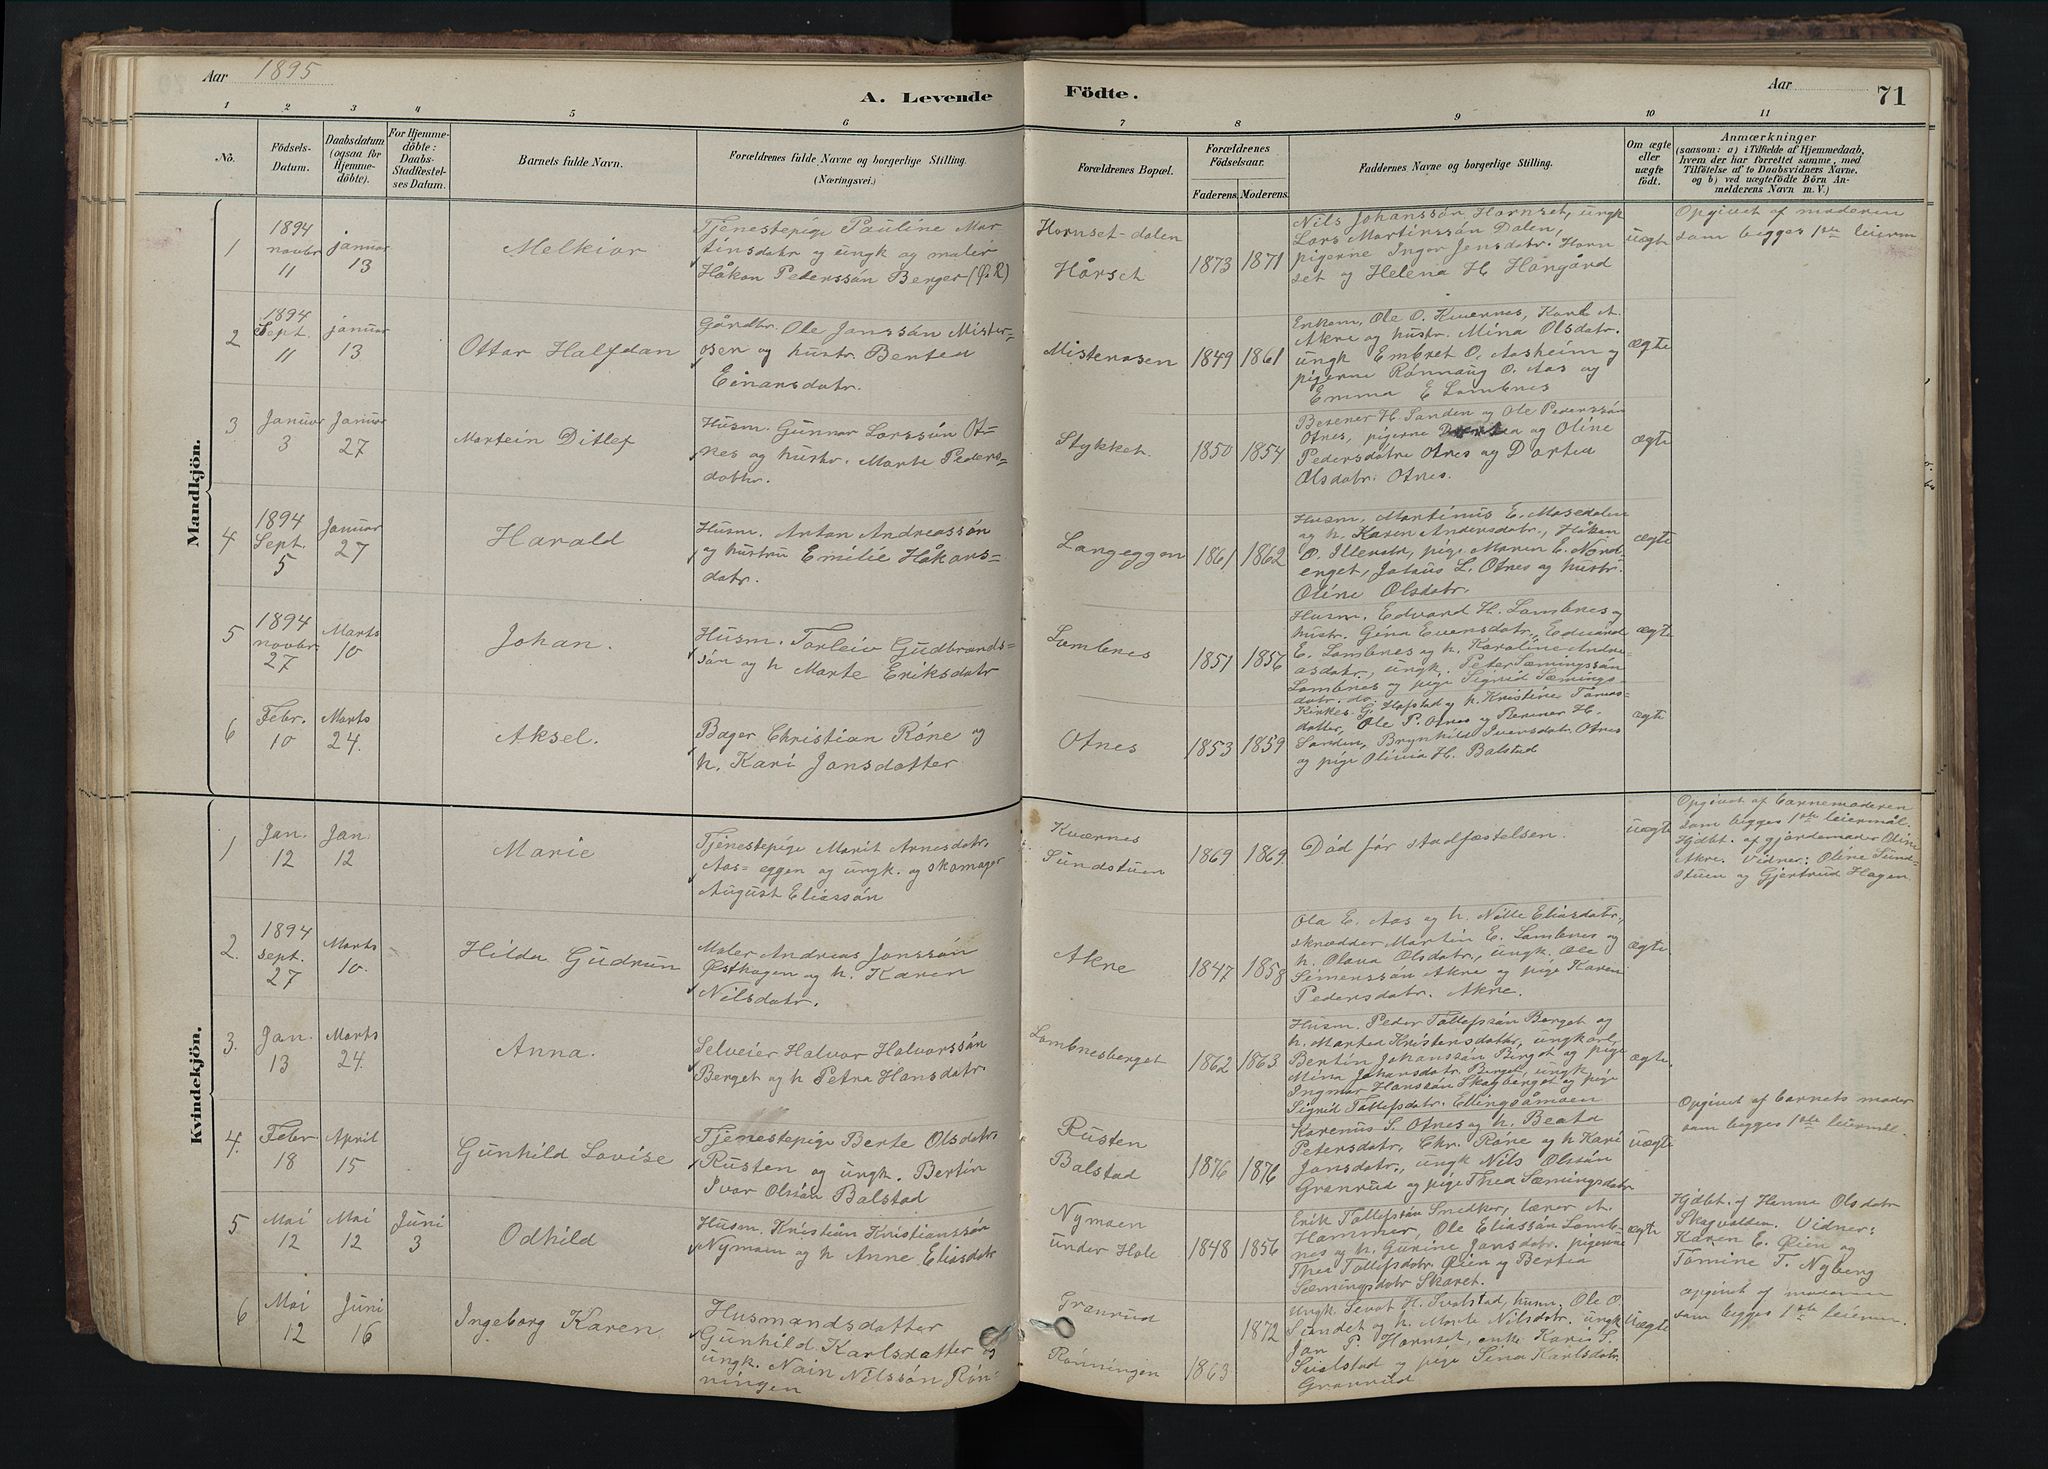 Aar 1895
A. Levende Födte.
Aar
71
1 2 3 4 5 6 7 8 9 10 11
No.
Födsels-Datum.
Daabsdatum (ogsaa for Hjemmedöbte).
For Hjemmedöbte: Daabs-Stadfestelses Datum.
Barnets fulde Navn.
Forældrenes fulde Navne og borgerlige Stilling. (Næringsvei.)
Forældrenes Bopæl.
Forældrenes Födselsaar.
Faderens. Moderens.
Faddernes Navne og borgerlige Stilling.
Om ægte eller uægte födt.
Anmærkninger
(saasom: a) i Tilfælde af Hjemmedaab,
hvem der har forrettet samme, med
Tilföielse af to Daabsvidners Navne.
og b) ved uægtefödte Börn An-
melderens Navn m. V.)
Mandkjön.
1
1894 novbr 11
januar 13
Melkior
Tjenestepige Pauline Mar
tinsdatr og ungk og maler
Håkon Pederssön Berger (f. R)
Hornset-dalen
Hårset
1873 1871
Nils Johanssön Hornset, ungk
Lars Martinssön Dalen,
pigerne Inger Jensdatr. Horn
set og Helena H. Hångård
uægte
Opgivet af moderen
som begges 1ste leierm
2
1894 Sept. 11
januar 13
Ottar Halfdan
Gårdbr. Ole Jonssön Mister-
osen og hustr Bertea
Einarsdatr.
Misterosen
1849 1861
Enkem. Ole O. Kværnes, Karl A.
Akre og hustr. Mina Olsdatr.
ungk Embret O. Aasheim og
pigerne Rönnaug O. Aas og
Emma E Lombnes
ægte
3
Januar 3
Januar 27
Martein Ditlef
Husm. Gunnar Larssön Ot-
nes og hustr. Marte Peders-
dottr.
Stykket
1850 1854
Berener H. Sanden og Ole Pederssön
Otnes, pigerne og Oline
Pedersdatre Otnes og Dortea
Olsdatr. Otnes.
ægte
4
1894 Sept. 5
Januar 27
Harald
Husm. Anton Andreassön
og hustru Emilie Håkons-
datr.
Langeggen
1861 1862
Husm. Martinus E. Mosedalen
og h. Karen Andersdatr., Håken
O. Illerstr, pige Maren E. Nord
enget, Johaus L. Otnes og hustr.
Oline Olsdatr.
ægte
5
1894 novbr. 27
Marts 10
Johan.
Husm. Torleiv Gudbrands-
sön og h Marte Eriksdatr
Lombnes
1851 1856
Husm. Edvard H. Lombnes og
hustr. Gina Evensdatr., Edvard
E. Lombnes og h. Karoline Andre-
asdatr, ungk. Peter Sæmingssön
Lombnes og pige Sigrid Sæmings-
datr. do.
ægte
6
Febr. 10
Marts 24.
Aksel.
Bager Christian Röne og
h. Kari Jonsdatter
Otnes
1853 1859
Kirkes. G. Hofstad og h. Kristine Tönnes-
datter, Ole P. Otnes og Berener H.
Sanden, Brynhild Iversdatr. Otnes
og pige Olivia H. Balstad
ægte
Kvindekjön.
1
Jan. 12
Jan. 12
Marie
Tjenestepige Marit Arnesdatr.
Aas-eggen og ungk. og skomager
August Eliassön
Kværnes
Sundstuen
1869 1869
Död för stadfæstelsen.
uægte
Opgivet af barnemoderen
som begges 1ste leiermål.
Hjdbt. af gjordemoder Oline
Akre. Vidner: Oline Sund-
stuen og Gjertrud Hagen.
2.
1894 sept. 27
Marts 10.
Hilda Gudrun
Maler Andreas Jonssön
Østhagen og h. Karen
Nilsdatr.
Akre
1847 1858
Ola E. Aas og h. Nille Eliasdatr.,
skrædder Martin E. Lombnes og
h. Olava Olsdatr., ungk. Ole
Simenssön Akre og pige Karen
Pedersdatr. Akre.
ægte.
3.
Jan. 13
Marts 24.
Anna.
Selveier Halvor Halvorssön
Berget og h Petra Hansdatr.
Lombnesberget
1862 1863
Husm. Peder Tollefssön Berget og
h. Martea Kristensdatr, ungkarl
Bertin Johanssön Berget og pige
Mina Johansdatr Berget, ungk
Ingmar Hanssön Skagberget og pige
Sigrid Tollefsdatr. Ellingsåmoen
ægte.
4.
Febr. 18
April 15
Gunhild Lovise
Tjenestepige Berte Olsdatr.
Rusten og ungk. Bertin
Ivar Olssön Balstad
Rusten
Balstad
1876 1876
Karenus S. Otnes og h. Beata
Petersdatr, Chr. Röne og h Kari
Jonsdatr., ungk Nils Olssön
Granrud og pige Thea Sæmingsdatr
uægte
Opgivet af barnets moder
som begges 1ste leiermål.
5
Mai 12
Mai 12
Juni 3
Odhild
Husm. Kristian Kristianssön
Nymoen og h Anne Eliasdatr
Nymoen
under Hole
1848 1856
Erik Tollefssön Smedker, lærer A.
Hammer, Ole Eliassön Lomb-
nes og h. Gurine Jonsdatr. pigerne
Thea Tollefsdatr. Øien og Bertea
Sæmingsdatr Skåret.
ægte
Hjdbt. af Hanne Olsdatr
Skagvolden. Vidner:
Karen E. Øien og
Tomine T. Nyberg
6
Mai 12
Juni 16
Ingeborg Karen.
Husmandsdatter
Gunhild Karlsdatter og
ungk. Nain Nilssön Rön-
ningen
Granrud
Rönningen
1863 1872
Ungk. Sevat H. Svalstad, husm. Ole O.
Sundet og h. Marte Nilsdatr. ungk
Jan P. Hornset, enke Kari S.
Svalstad og pige Sina Karlsdatr.
Granrud
Uægte
opgivet af moderen
som begges 1ste leierm.